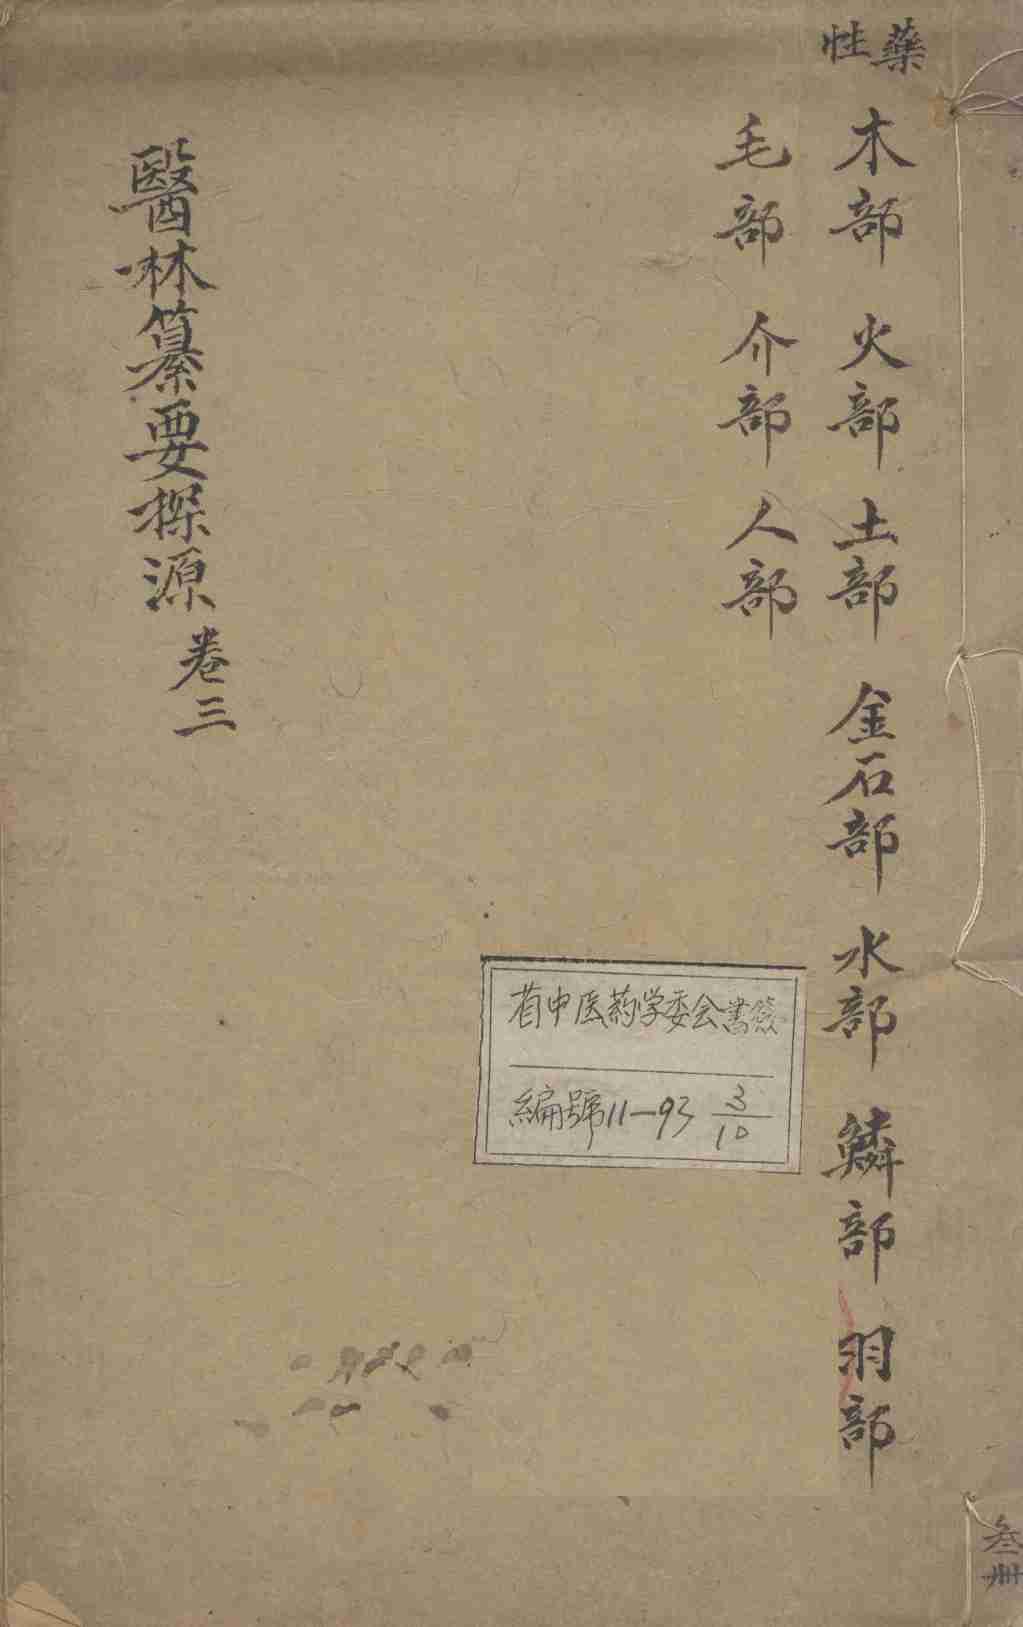 藥性
木部 火部 土部 金石部 水部 鱗部 羽部
毛部 介部 人部
醫林纂要探源 卷三
省中医药学委会書籤
編號11—93 3/10
叁册